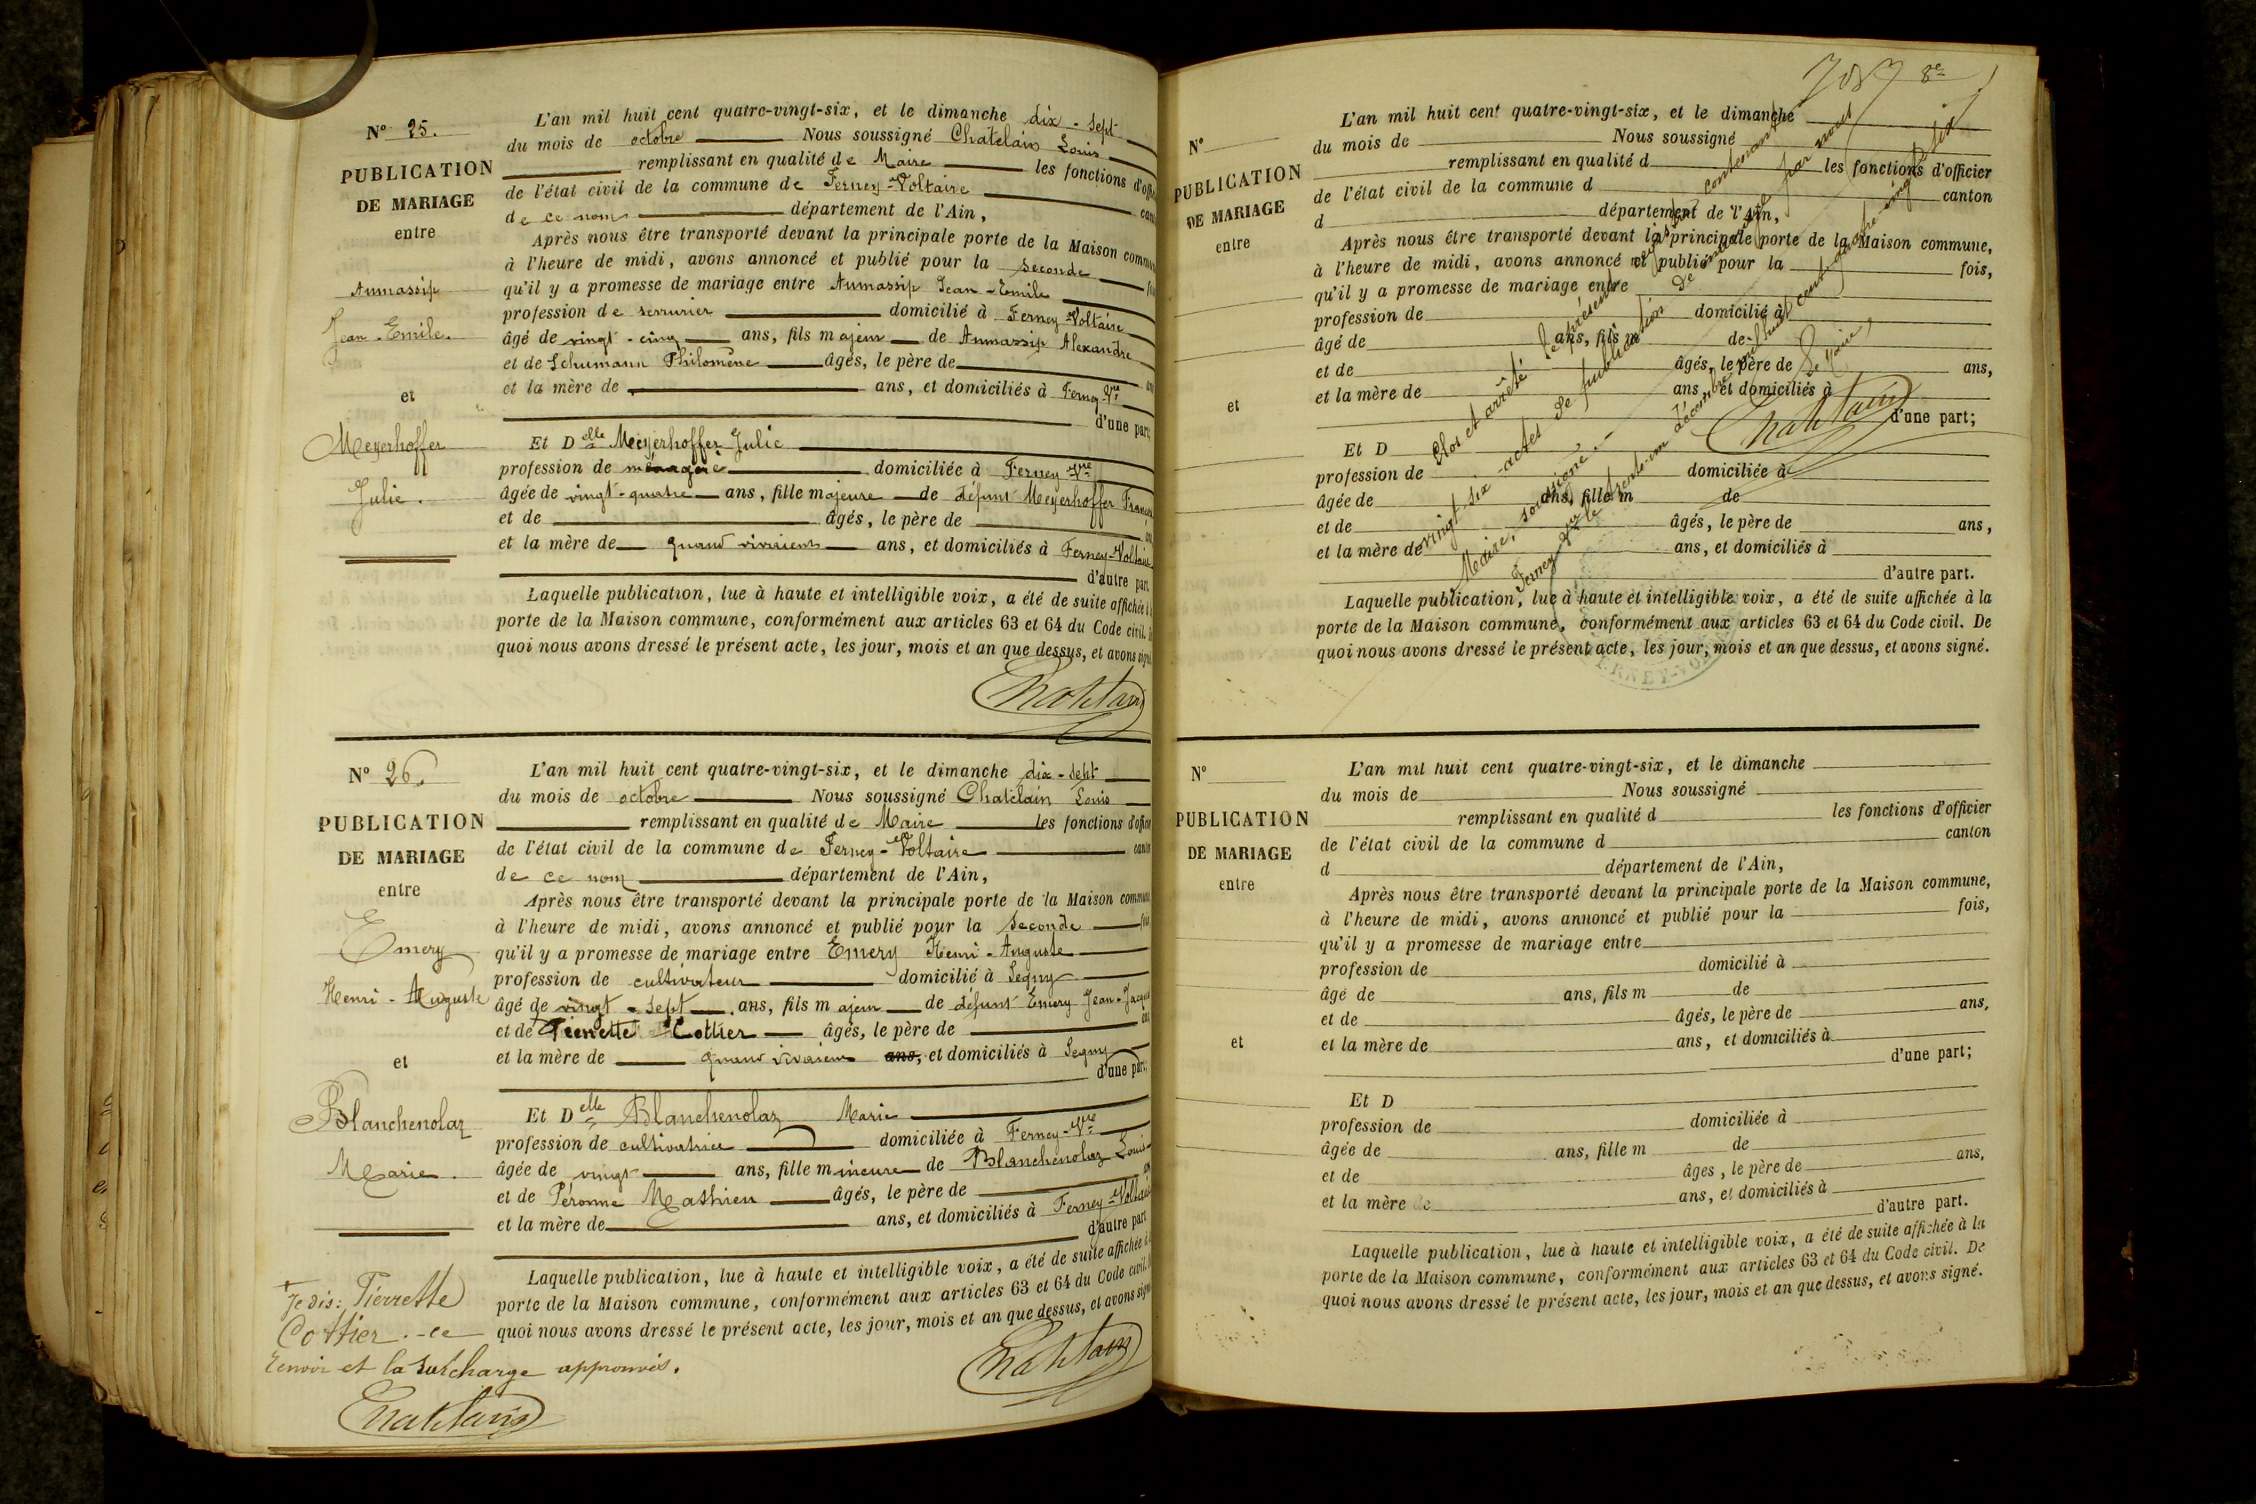 Nº 25.
PUBLICATION
DE MARIAGE
entre
Aumassip
Jean-Emile.
et
Meyerhoffer
Julie.
L'an mil huit cent quatre-vingt-six, et le dimanche dix-sept
du mois de octobre Nous soussigné Chatelain Louis
remplissant en qualité de Maire les fonctions d'offi
de l'état civil de la commune de Ferney-Voltaire can
de ce nom département de l'Ain,
Après nous être transporté devant la principale porte de la Maison commun
à l'heure de midi, avons annoncé et publié pour la seconde fo
qu'il y a promesse de mariage entre Aumassip Jean-Emile
profession de serrurier domicilié à Ferney-Voltaire
âgé de vingt-cinq ans, fils majeur de Aumassip Alexandre
et de Schumann Philomène âgés, le père de an
et la mère de ans, et domiciliés à Ferney-Vre
d'une part;
Et Delle Meyerhoffer Julie
profession de ménagère domiciliée à Ferney-Vre
âgée de vingt-quatre ans, fille majeure de défunt Meyerhoffer François
et de âgés, le père de an
et la mère de quand vivaient ans, et domiciliés à Ferney-Voltaire
d'autre part
Laquelle publication, lue à haute et intelligible voix, a été de suite affichée à l
porte de la Maison commune, conformément aux articles 63 et 64 du Code civil. D
quoi nous avons dressé le présent acte, les jour, mois et an que dessus, et avons signé
Chatelain
Nº 26.
PUBLICATION
DE MARIAGE
entre
Emery
Henri-Auguste
et
Blanchenolaz
Marie.
L'an mil huit cent quatre-vingt-six, et le dimanche dix-sept
du mois de octobre Nous soussigné Chatelain Louis
remplissant en qualité de Maire les fonctions d'officie
de l'état civil de la commune de Ferney-Voltaire canto
de ce nom département de l'Ain,
Après nous être transporté devant la principale porte de la Maison commune
à l'heure de midi, avons annoncé et publié pour la seconde foi
qu'il y a promesse de mariage entre Emery Henri-Auguste
profession de cultivateur domicilié à Segny
âgé de vingt-sept ans, fils majeur de défunt Emery Jean-Jacques
et de Pierrette Cottier âgés, le père de an
et la mère de quand vivaient ans, et domiciliés à Segny
d'une part;
Et Delle Blanchenolaz Marie
profession de cultivatrice domiciliée à Ferney-Vre
âgée de vingt ans, fille mineure de Blanchenolaz Louis
et de Péronne Mathieu âgés, le père de an
et la mère de ans, et domiciliés à Ferney-Voltaire
d'autre part
Laquelle publication, lue à haute et intelligible voix, a été de suite affichée à l
porte de la Maison commune, conformément aux articles 63 et 64 du Code civil. D
quoi nous avons dressé le présent acte, les jour, mois et an que dessus, et avons signé
Chatelain
+ Je dis: Pierrette
Cottier.- ce
renvoi et la surcharge approuvés.
Chatelain
8e
Nº
PUBLICATION
DE MARIAGE
entre
et
L'an mil huit cent quatre-vingt-six, et le dimanche
du mois de Nous soussigné
remplissant en qualité d les fonctions d'officier
de l'état civil de la commune d canton
d département de l'Ain,
Après nous être transporté devant la principale porte de la Maison commune,
à l'heure de midi, avons annoncé et publié pour la fois,
qu'il y a promesse de mariage entre
profession de domicilié à
âgé de ans, fils m de
et de âgés, le père de ans,
et la mère de ans, et domiciliés à
d'une part;
Et D
profession de domiciliée à
âgée de ans, fille m de
et de âgés, le père de ans,
et la mère de ans, et domiciliés à
d'autre part.
Laquelle publication, lue à haute et intelligible voix, a été de suite affichée à la
porte de la Maison commune, conformément aux articles 63 et 64 du Code civil. De
quoi nous avons dressé le présent acte, les jour, mois et an que dessus, et avons signé.
Clos et arrêté le présent registre contenant
vingt six actes de publication de mariage par nous
Maire, soussigné.-
Ferney-Vre le trente-un décembre mil huit cent quatre-vingt-six
Le Maire,
Chatelain
FERNEY-VOL
Nº
PUBLICATION
DE MARIAGE
entre
et
L'an mil huit cent quatre-vingt-six, et le dimanche
du mois de Nous soussigné
remplissant en qualité d les fonctions d'officier
de l'état civil de la commune d canton
d département de l'Ain,
Après nous être transporté devant la principale porte de la Maison commune,
à l'heure de midi, avons annoncé et publié pour la fois,
qu'il y a promesse de mariage entre
profession de domicilié à
âgé de ans, fils m de
et de âgés, le père de ans,
et la mère de ans, et domiciliés à
d'une part;
Et D
profession de domiciliée à
âgée de ans, fille m de
et de âges, le père de ans,
et la mère de ans, et domiciliés à
d'autre part.
Laquelle publication, lue à haute et intelligible voix, a été de suite affichée à la
porte de la Maison commune, conformément aux articles 63 et 64 du Code civil. De
quoi nous avons dressé le présent acte, les jour, mois et an que dessus, et avons signé.